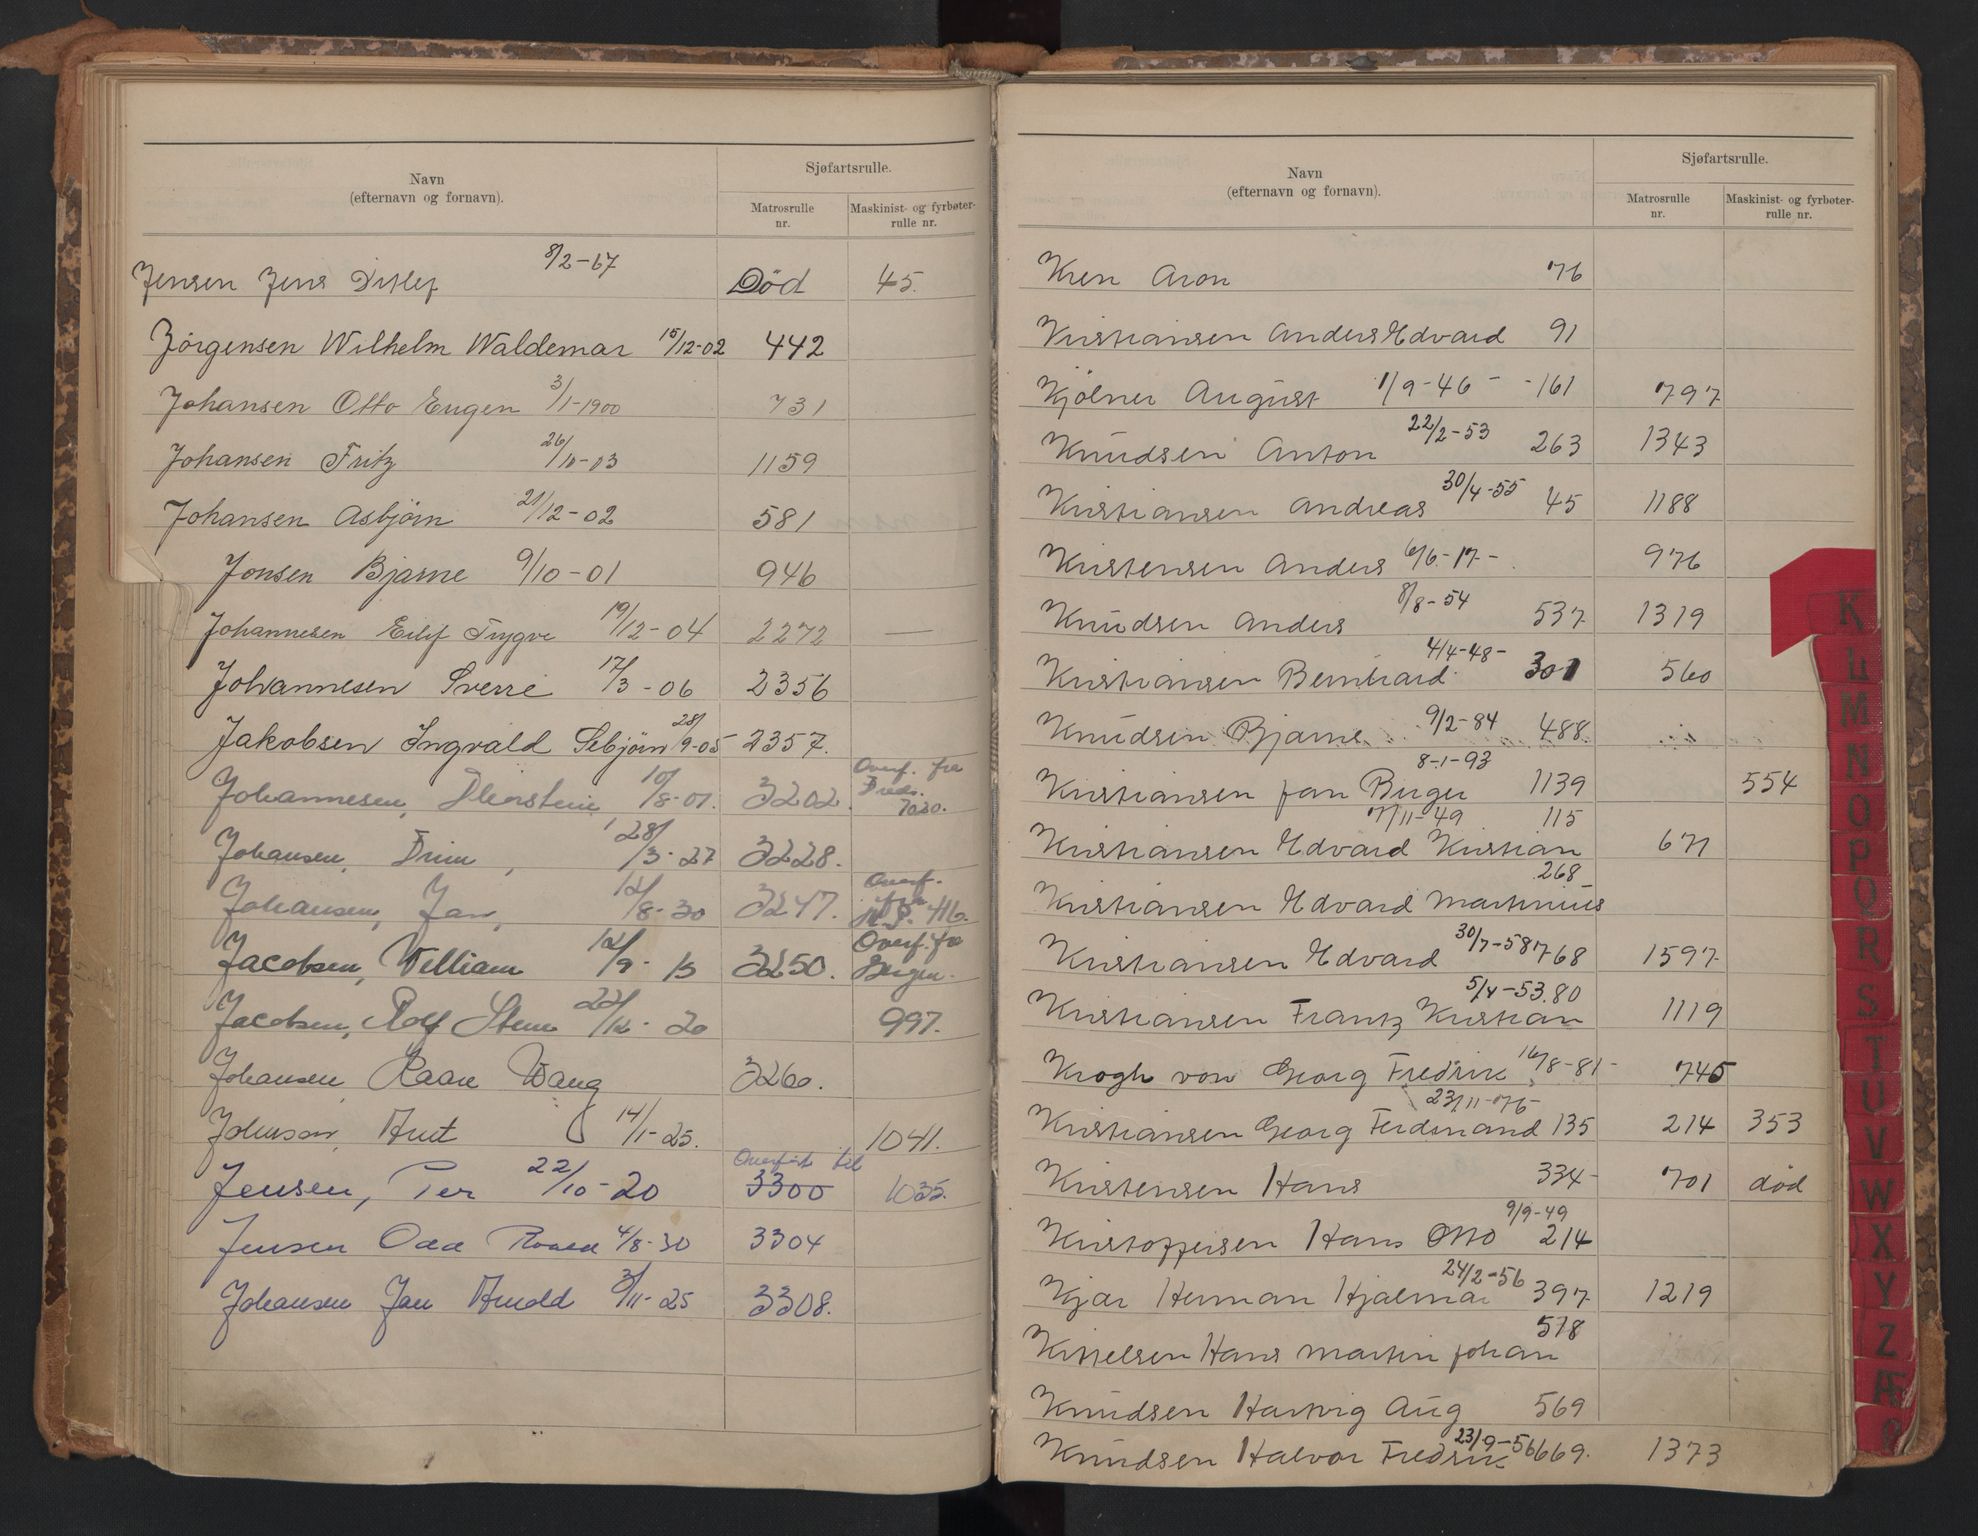 Navn
(efternavn og fornavn).
Sjøfartsrulle.
Matrosrulle nr.
Maskinist- og fyrbøter-rulle nr.
Jensen Jens Ditlef 8/2-67 Død 45.
Jörgensen Wilhelm Waldemar 15/12-02 442
Johansen Otto Eugen 3/1-1900 731
Johansen Fritz 26/10-03 1159
Johansen Asbjörn 21/12-02 581
Jonsen Bjarne 9/10-01 946
Johannesen Eilif Trygve 19/12-04 2272 —
Johannesen Sverre 17/3-06 2356
Jakobsen Ingvald Sebjörn 28/9-05 2357.
Johannesen, Thorstein 10/8-07. 3202. Overf. fra Freds. 7030.
Johansen, 28/3-27 3228.
Johansen, Jan, 12/8-30 3247. Overf. fra 416.
Jacobsen, William 12/9-13 3250. Overf. fra Bergen.
Jacobsen, Rolf Stene 22/12-20 997.
Johansen, Kaare Wang 3260.
Johnson, Knut 14/1-25. 1041.
Jensen, Per 22/10-20 3300 Overført til 1035.
Jensen Odd Roald 4/8-30 3304
Johansen Jan Arnold 3/11-25 3308.
Navn
(efternavn og fornavn).
Sjøfartsrulle.
Matrosrulle nr.
Maskinist- og fyrbøter-rulle nr.
Kren Aron 76
Kristiansen Anders Edvard 91
Kjölner August 1/9-46 - -161 797
Knudsen Anton 22/2-53 263 1343
Kristiansen Andreas 30/4-55 45 1188
Kristensen Anders 6/6-17- 976
Knudsen Anders 8/8-54 537 1319
Kristiansen Bernhard 4/4-48- 301 560
Knudsen Bjarne 9/2-84 488
Kristiansen Jan Birger 8-1-93 1139 554
Kristiansen Edvard Kristian 7/11-49 115 671
Kristiansen Edvard Martinius 268
Kristiansen Edvard 30/7-58 768 1597
Kristiansen Frantz Kristian 5/4-53. 80 1119
Krogh von Georg Fredrik 16/8-81- 745
Kristiansen Georg Ferdinand 23/11-76- 135 214 353
Kristensen Hans 334- 701 død
Kristoffersen Hans Otto 9/9-49 214
Kjær Herman Hjalmar 24/2-56 397 1219
Kittelsen Hans Martin Johan 518
Knudsen Hartvig Aug 569
Knudsen Halvor Fredrik 23/9-56 669. 1373
K
L
M
N
O
P
Q
R
S
T
U
V
W
X
Y
Z
Æ
Ø